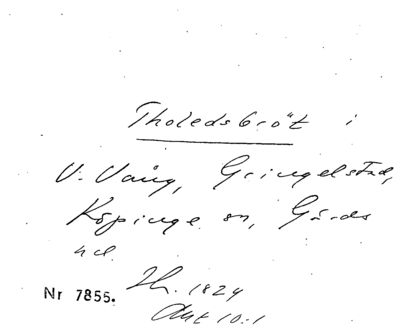 Tholedsbröt i
V. Vång, Gringelstad,
Köpinge sn, Gärds
hd.
Nr 7855. Zh. 1824
Akt 10:1